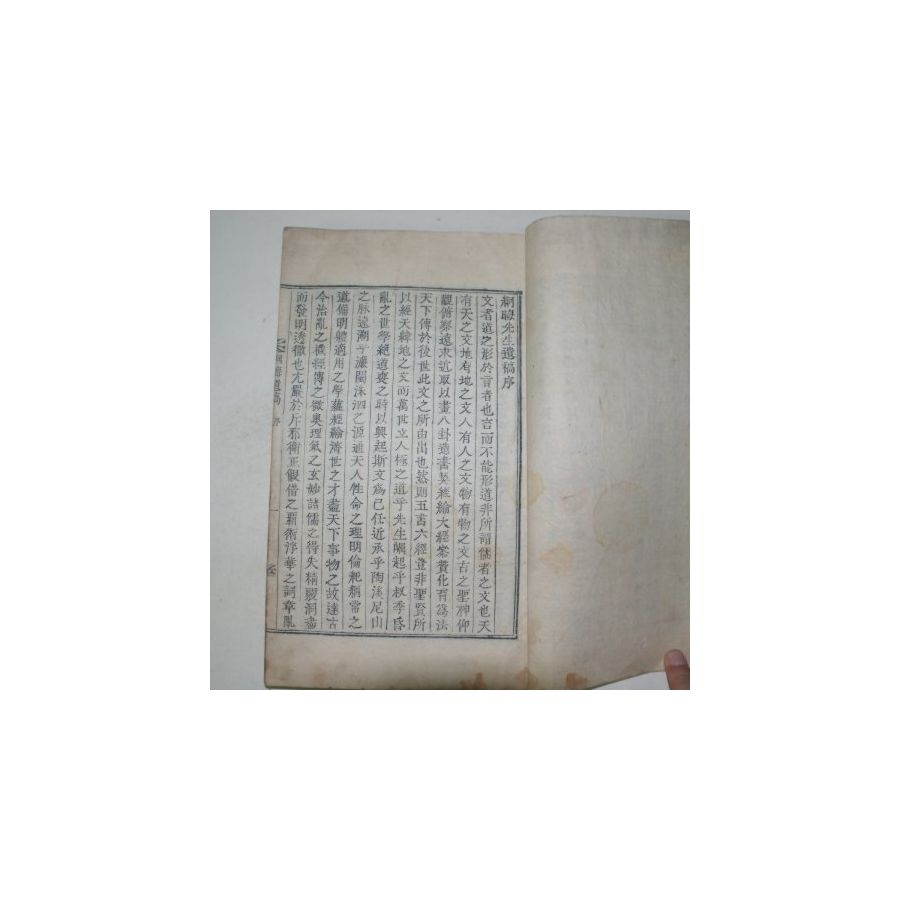 先生遺稿序
文者道之形於言者也言而不能形道非所謂儒者之文也天
有天之文地有地之文人有人之文物有物之文古之聖神仰
觀俯察遠求近取以畫八卦造書契經綸大經叅贊化育爲法
天下傳於後世此文之所由出也然則五書六經豈非聖賢所
以經天緯地之文而萬世立人極之道乎先生崛起乎叔季昏
亂之世學絕道喪之時以興起斯文爲己任近承乎陶溪尼山
之脉遠溯乎濂閩洙泗之源通天人性命之理明倫紀綱常之
道備明軆適用之學蘊經綸濟世之才盡天下事物之故達古
今治亂之機經傳之微奥理氣之玄妙諸儒之得失精覈洞盡
而發明透徹也尤嚴於斥邪衛正假借之覇術浮華之詞章亂
遺稿 序